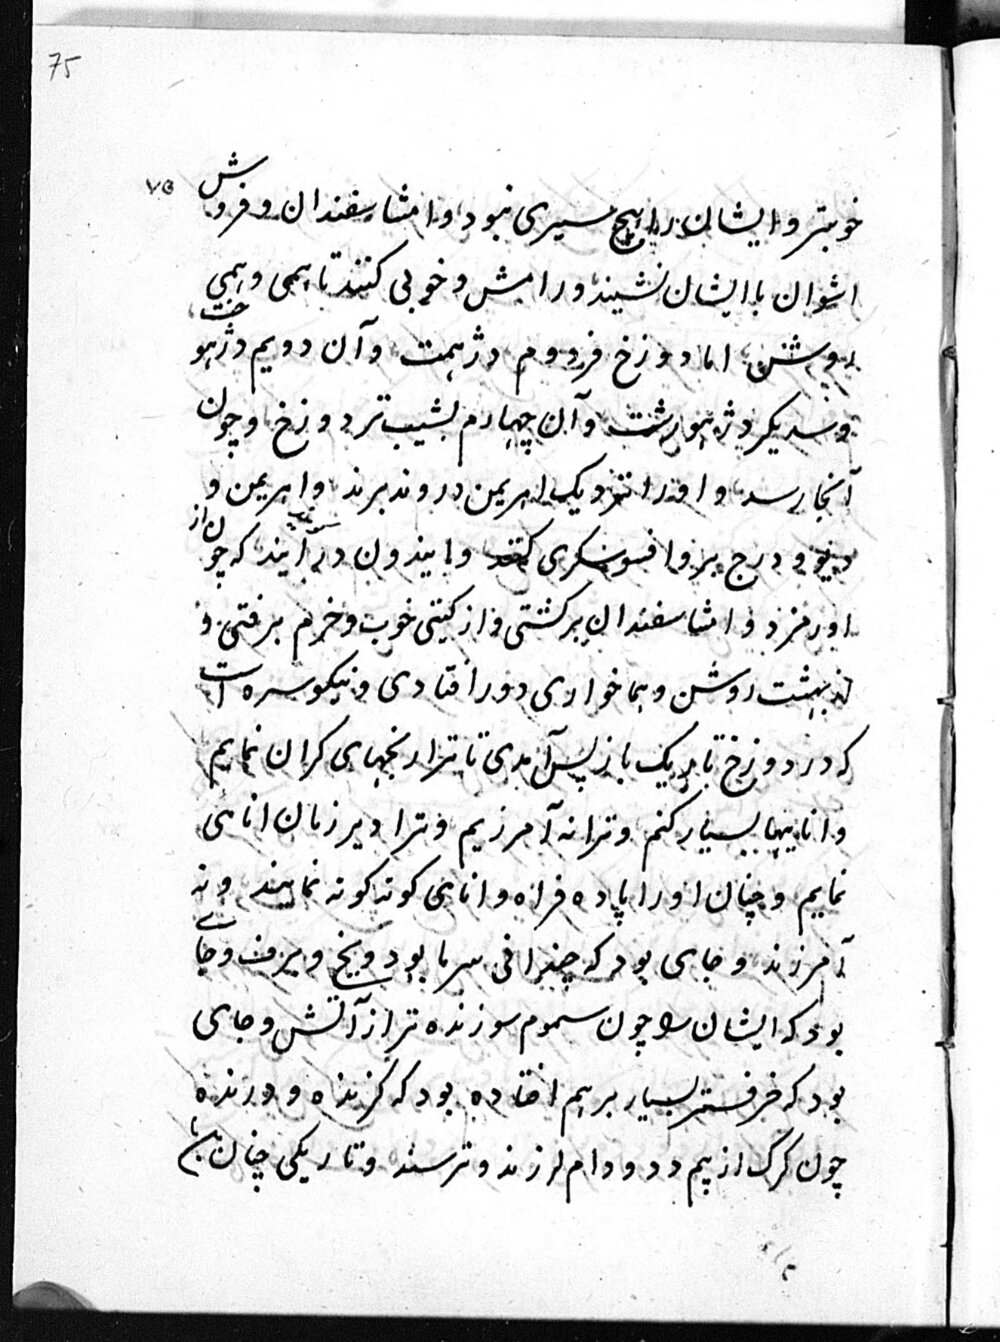 75
۷۵
خوبتر و ایشان را هیچ سیری نبود و امشاسفندان و فروش
اشوان با ایشان نشیند و رامش و خوبی کنند تا همی و همی
روشن اما دوزخ فردوم دژهمت و آن دویم دژهوخت
و سدیکر دژهورشت و آن چهارم بشیب تر دوزخ و چون
آنجا رسد و او را نزدیک اهریمن دروند برند و اهریمن و
دیو و درج بر و افسوسکری کنند و ایدون درآیند که چون از
اورمزد و امشاسفندان برکشتی و از کیتی خوب و خرم برفتی و
از بهشت روشن و هماخواری دور افتادی و نیکو سره است
که در دوزخ تاریک باز پس آمدی تا ترا رنجهای کران نمایم
و اناییها بسیار کنم و ترا نه آمرزیم و ترا دیر زمان اناهی
نمایم و چنان او را پاده فراه و اناهی کونه کونه نمایند و نه
آمرزند و جای بود که چندانی سرما بود و یخ و برف و جای
بود که ایشان را چون سموم سوزنده تر از آتش و جای
بود که خرفستر بسیار بر هم افتاده بود که کزنده و درنده
چون کرک از بیم دد و دام لرزند و ترسند و تاریکی چنان